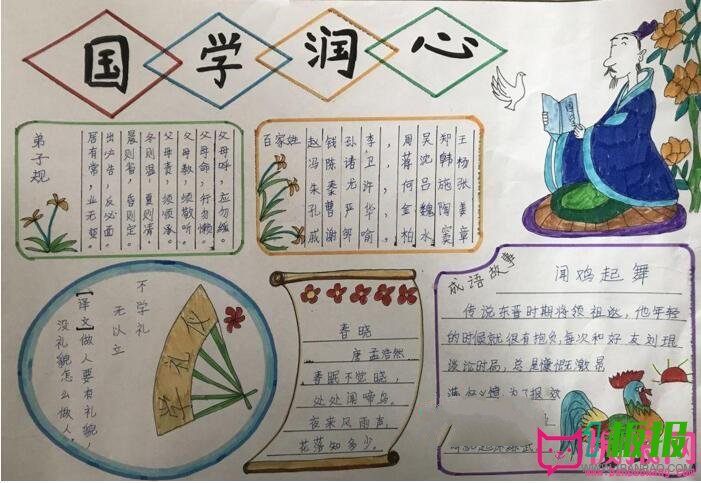 国学润心
弟子规
父母呼，应勿缓。
父母命，行勿懒。
父母教，须敬听。
父母责，须顺承。
冬则温，夏则凊。
晨则省，昏则定。
出必告，反必面。
居有常，业无变。
百家姓
赵钱孙李，周吴郑王
冯陈诸卫，蒋沈韩杨
朱秦尤许，何吕施张
孔曹严华，金魏陶姜
戚谢邹喻，柏水窦章
国学
不学礼
无以立
【译文】做人要有礼貌，
没礼貌怎么做人
学礼仪
春晓
唐 孟浩然
春眠不觉晓，
处处闻啼鸟。
夜来风雨声，
花落知多少。
成语故事
闻鸡起舞
传说东晋时期将领祖逖，他年轻
的时候就很有抱负，每次和好友刘琨
谈论时局，总是慷慨激昂
满
为了报效
板报